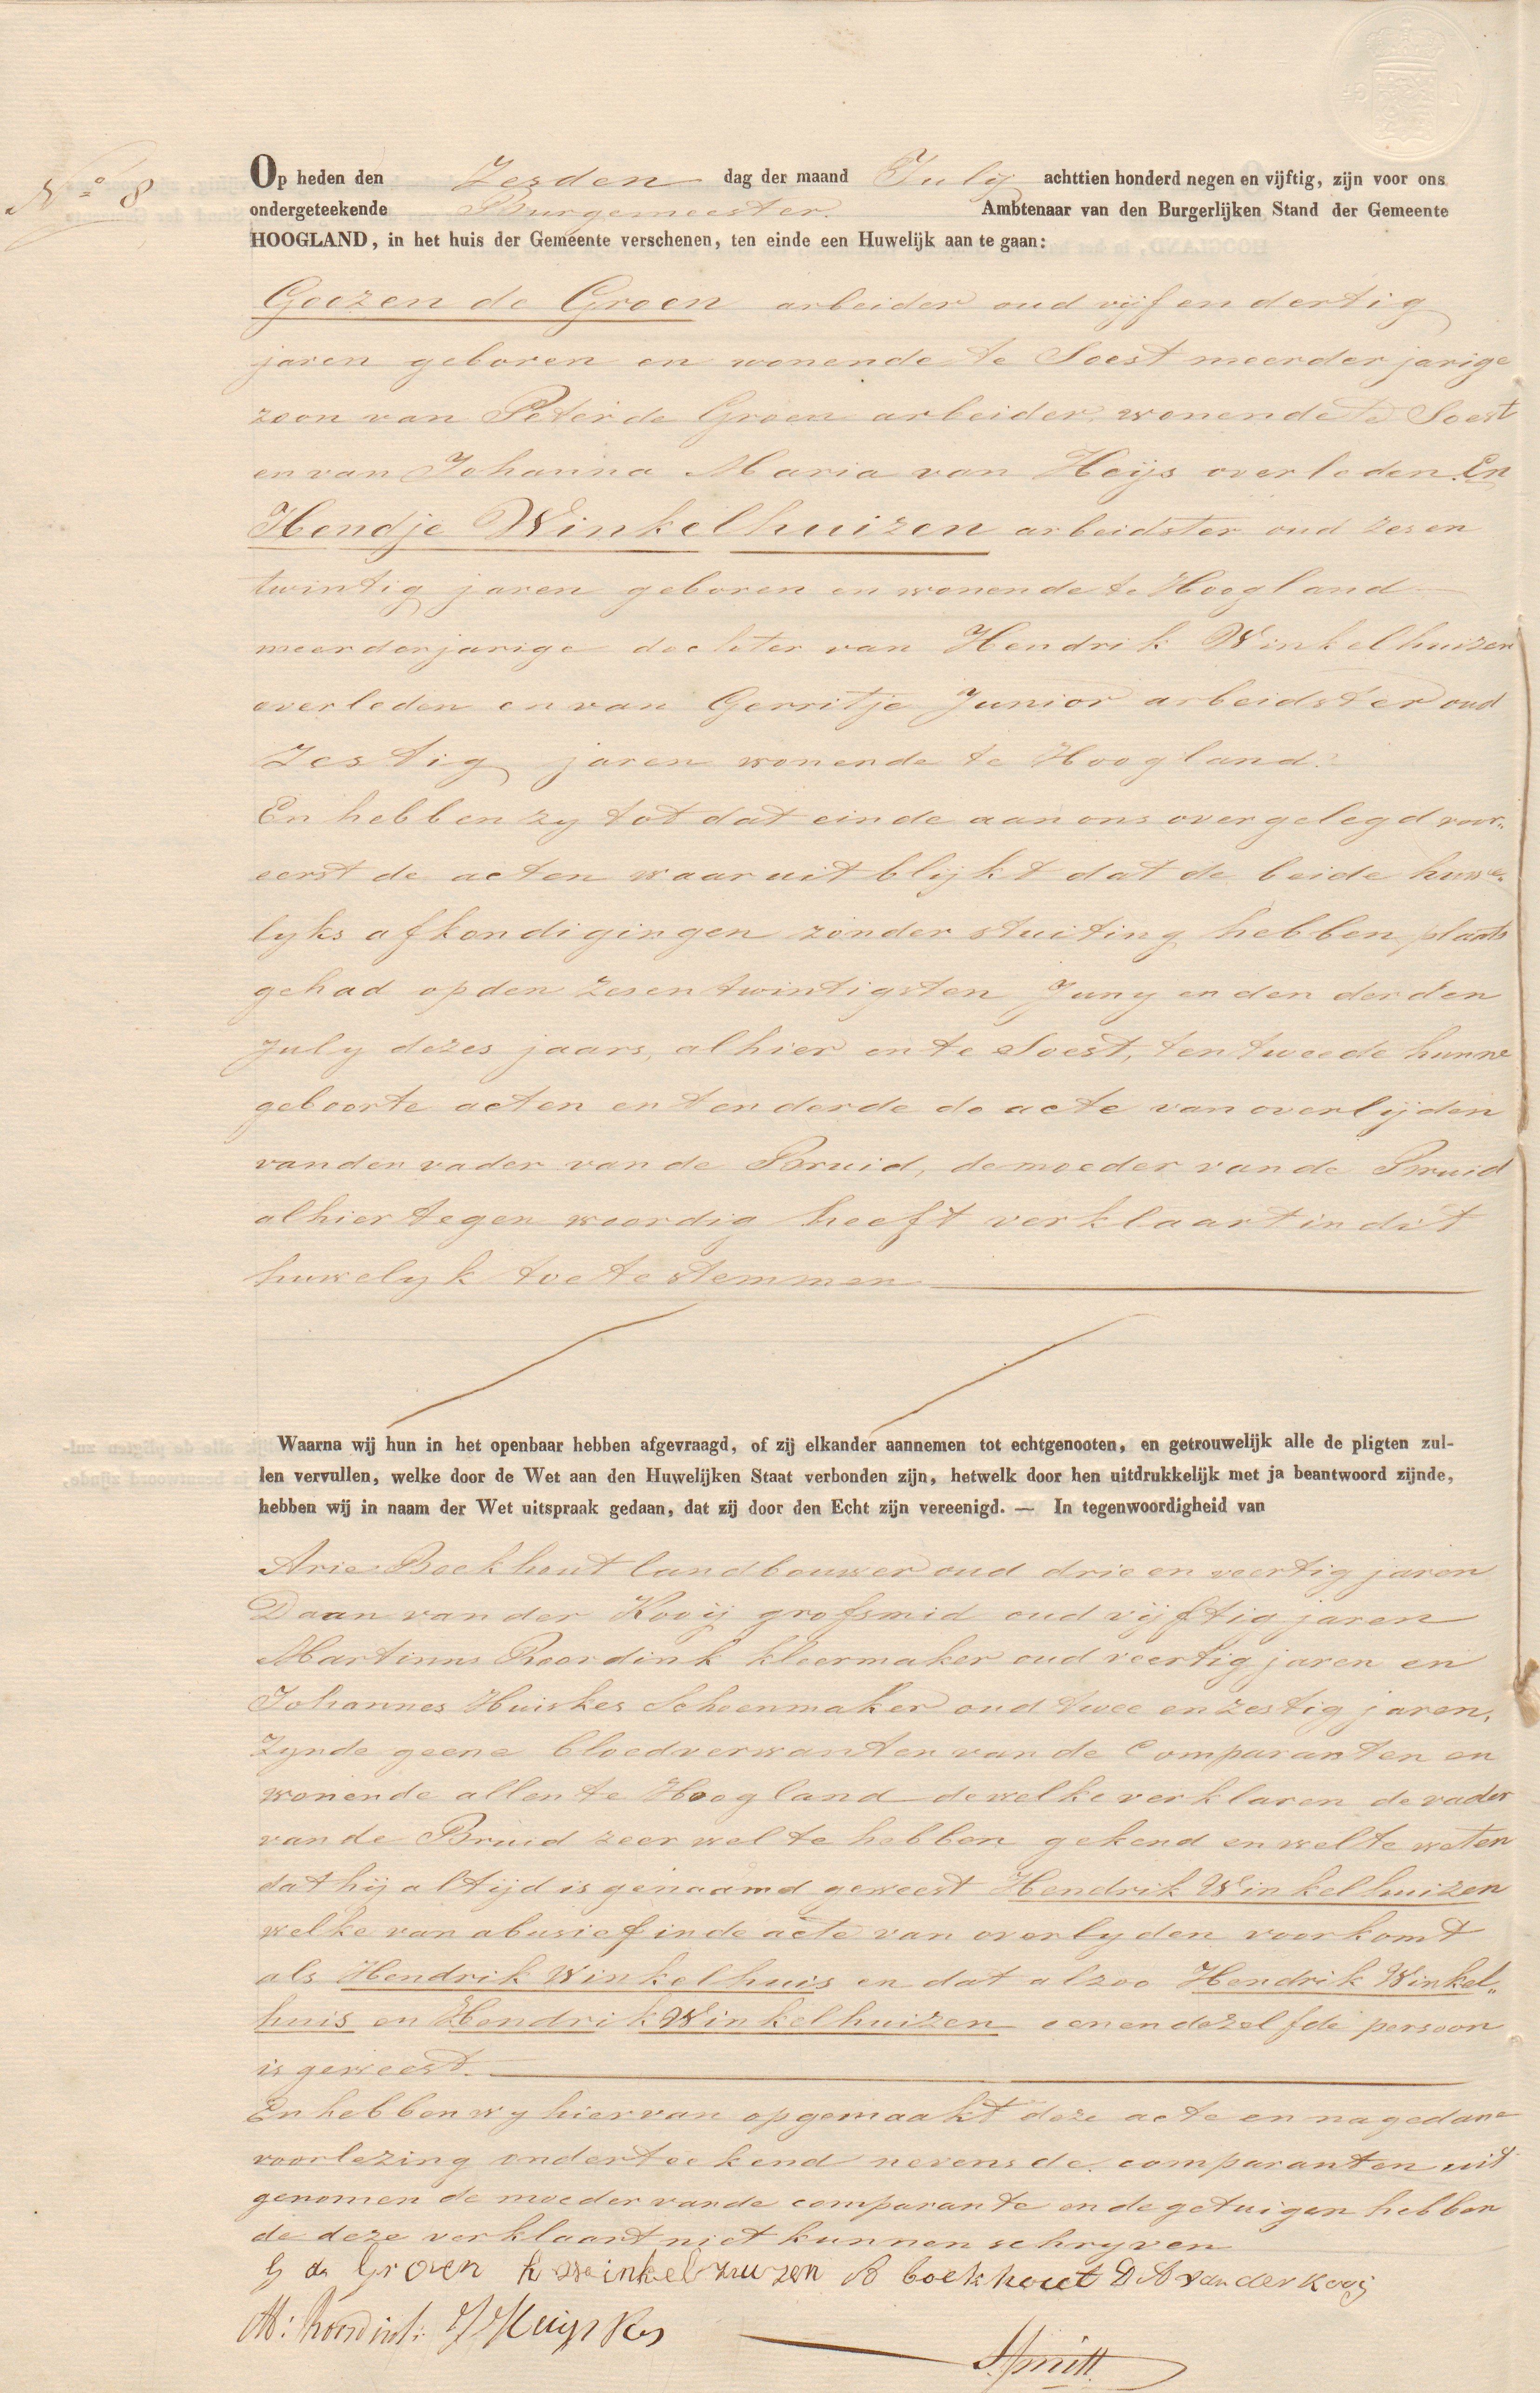 No 8
Op heden den Zesden dag der maand July achttien honderd negen en vijftig, zijn voor ons
ondergeteekende Burgemeester. Ambtenaar van den Burgerlijken Stand der Gemeente
HOOGLAND, in het huis der Gemeente verschenen, ten einde een Huwelijk aan te gaan:
Goozen de Groen arbeider oud vijf en dertig
jaren geboren en wonende te Soest meerderjarige
zoon van Peter de Groen arbeider wonende te Soest
en van Johanna Maria van Heijs overleden. En
Hendje Winkelhuizen arbeidster oud zes en
twintig jaren geboren en wonende te Hoogland
meerderjarige dochter van Hendrik Winkelhuizen
overleden en van Gerritje Junior arbeidster oud
Zestig jaren wonende te Hoogland.
En hebben zy tot dat einde aan ons overgelegd voor„
eerst de acten waaruit blijkt dat de beide huwe„
lyks afkondigingen zonder stuiting hebben plaats
gehad op den zesentwintigsten Juny en den derden
July dezes jaars, alhier en te Soest, ten tweede hunne
geboorte acten en ten derde de acte van overlijden
van den vader van de Bruid, de moeder van de Bruid
alhier tegenwoordig heeft verklaart in dit
huwelyk toe te stemmen
Waarna wij hun in het openbaar hebben afgevraagd, of zij elkander aannemen tot echtgenooten, en getrouwelijk alle de pligten zul-
len vervullen, welke door de Wet aan den Huwelijken Staat verbonden zijn, hetwelk door hen uitdrukkelijk met ja beantwoord zijnde,
hebben wij in naam der Wet uitspraak gedaan, dat zij door den Echt zijn vereenigd. — In tegenwoordigheid van
Arie Boekhout landbouwer oud drie en veertig jaren
Daan van der Kooij grofsmid oud vijftig jaren
Martinus Roordink kleermaker oud veertig jaren en
Johannes Huiskes Schoenmaker oud twee en zestig jaren,
zynde geene bloedverwanten van de Comparanten en
wonende allen te Hoogland dewelke verklaren de vader
van de Bruid zeer wel te hebben gekend en wel te weten
dat hij altijd is genaamd geweest Hendrik Winkelhuizen
welke van abusief in de acte van overlyden voorkomt
als Hendrik Winkelhuis en dat alzoo Hendrik Winkel„
huis en Hendrik Winkelhuizen een en dezelfde persoon
is geweest.
En hebben wy hiervan opgemaakt deze acte en na gedane
voorlezing onderteekend nevens de comparanten uit
genomen de moeder van de comparante en de getuigen hebben
de deze verklaart niet kunnen schryven
G de Groen h winkelhuizen A boekhout D A van der Kooij
M: Roordink J Huijskes